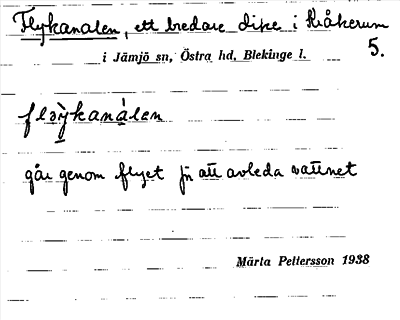 Flykanalen, ett bredare dike i Kråkerum
5.
i Jämjö sn, Östra hd, Blekinge l.
fləỳkanálen
går genom flyet för att avleda vattnet
Märta Pettersson 1938